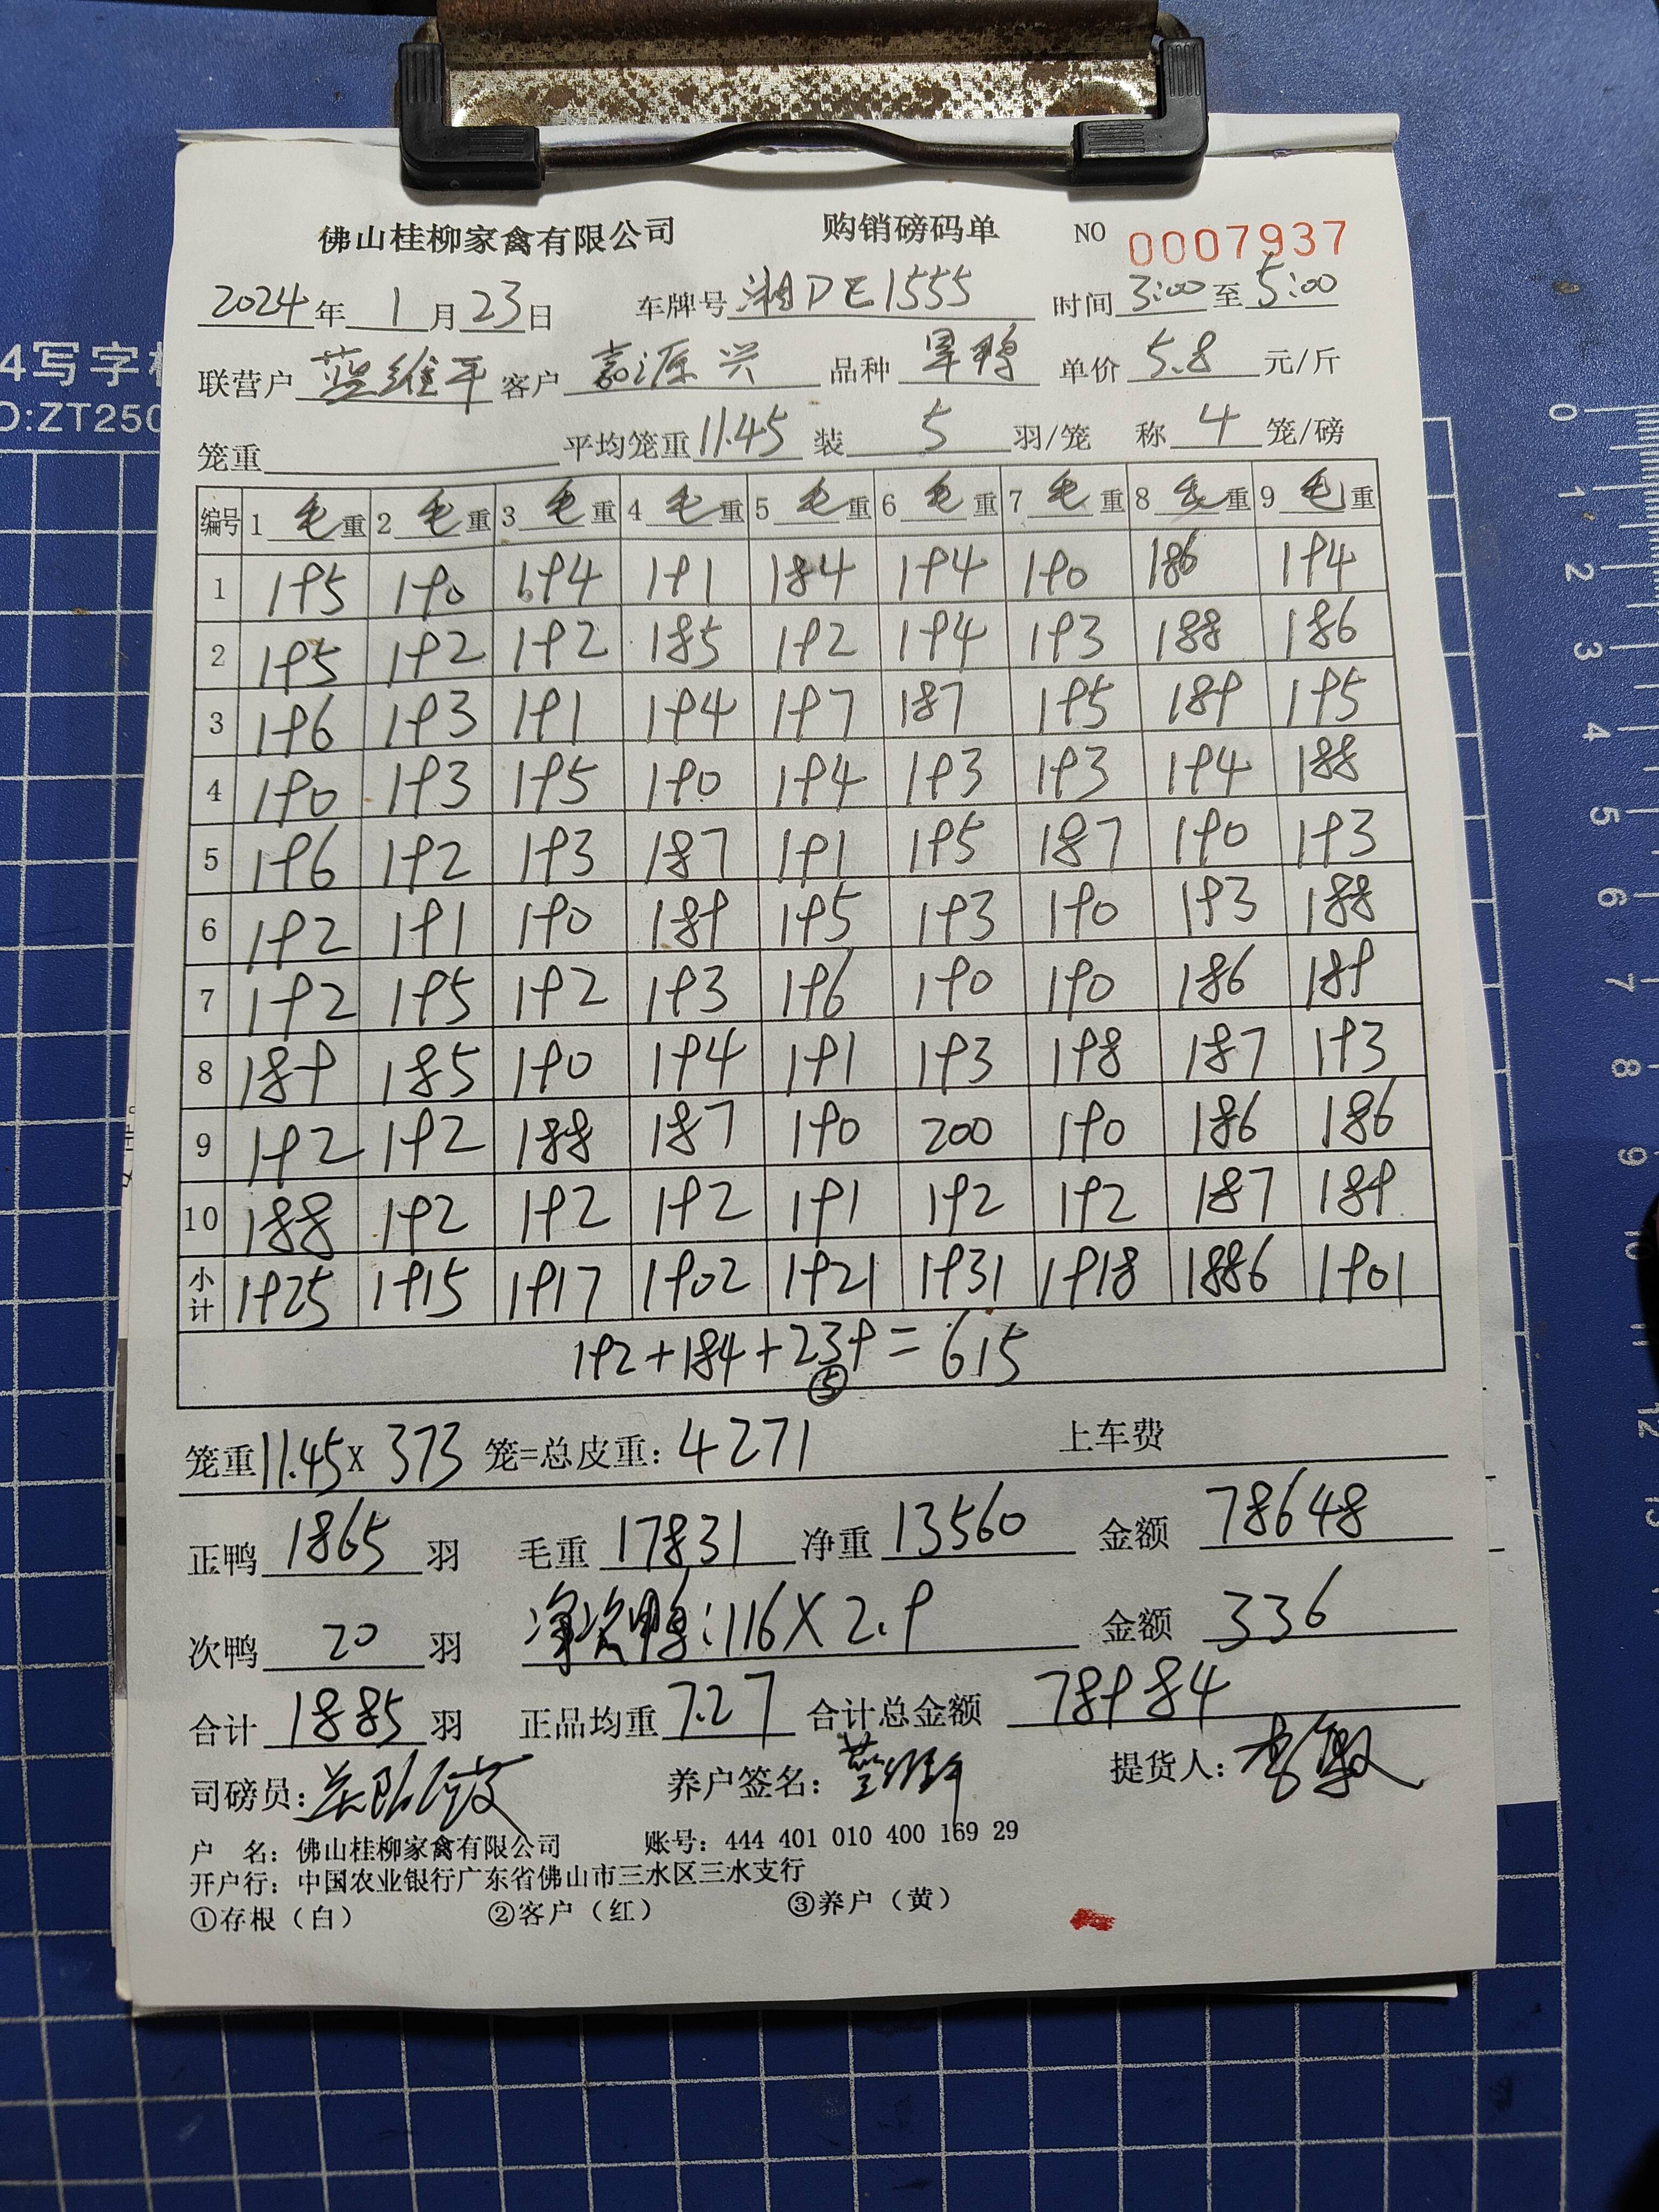 佛山桂柳家禽有限公司 购销磅码单 NO 0007937
2024年1月23日 车牌号 湘DE1555 时间 3:00 至 5:00
联营户 蓝维平 客户 嘉源兴 品种 旱鸭 单价 5.8 元/斤
笼重 平均笼重 11.45 装 5 羽/笼 称 4 笼/磅
编号 1 毛重 2 毛重 3 毛重 4 毛重 5 毛重 6 毛重 7 毛重 8 毛重 9 毛重
1 195 190 194 191 184 194 190 186 194
2 195 192 192 185 192 194 193 188 186
3 196 193 191 194 197 187 195 189 195
4 190 193 195 190 194 193 193 194 188
5 196 192 193 187 191 195 187 190 193
6 192 191 190 189 195 193 190 193 188
7 192 195 192 193 196 190 190 186 189
8 189 185 190 194 191 193 198 187 193
9 192 192 188 187 190 200 190 186 186
10 188 192 192 192 191 192 192 187 189
小计 1925 1915 1917 1902 1921 1931 1918 1886 1901
192+184+239=615
⑤
笼重 11.45 x 373 笼=总皮重: 4271 上车费
正鸭 1865 羽 毛重 17831 净重 13560 金额 78648
次鸭 20 羽 净次鸭:116X2.9 金额 336
合计 1885 羽 正品均重 7.27 合计总金额 78984
司磅员: 养户签名: 提货人:
户 名: 佛山桂柳家禽有限公司 账号: 444 401 010 400 169 29
开户行: 中国农业银行广东省佛山市三水区三水支行
①存根（白） ②客户（红） ③养户（黄）
4写字
O:ZT250
0 1 2 3 4 5 6 7 8 9 10 12 13